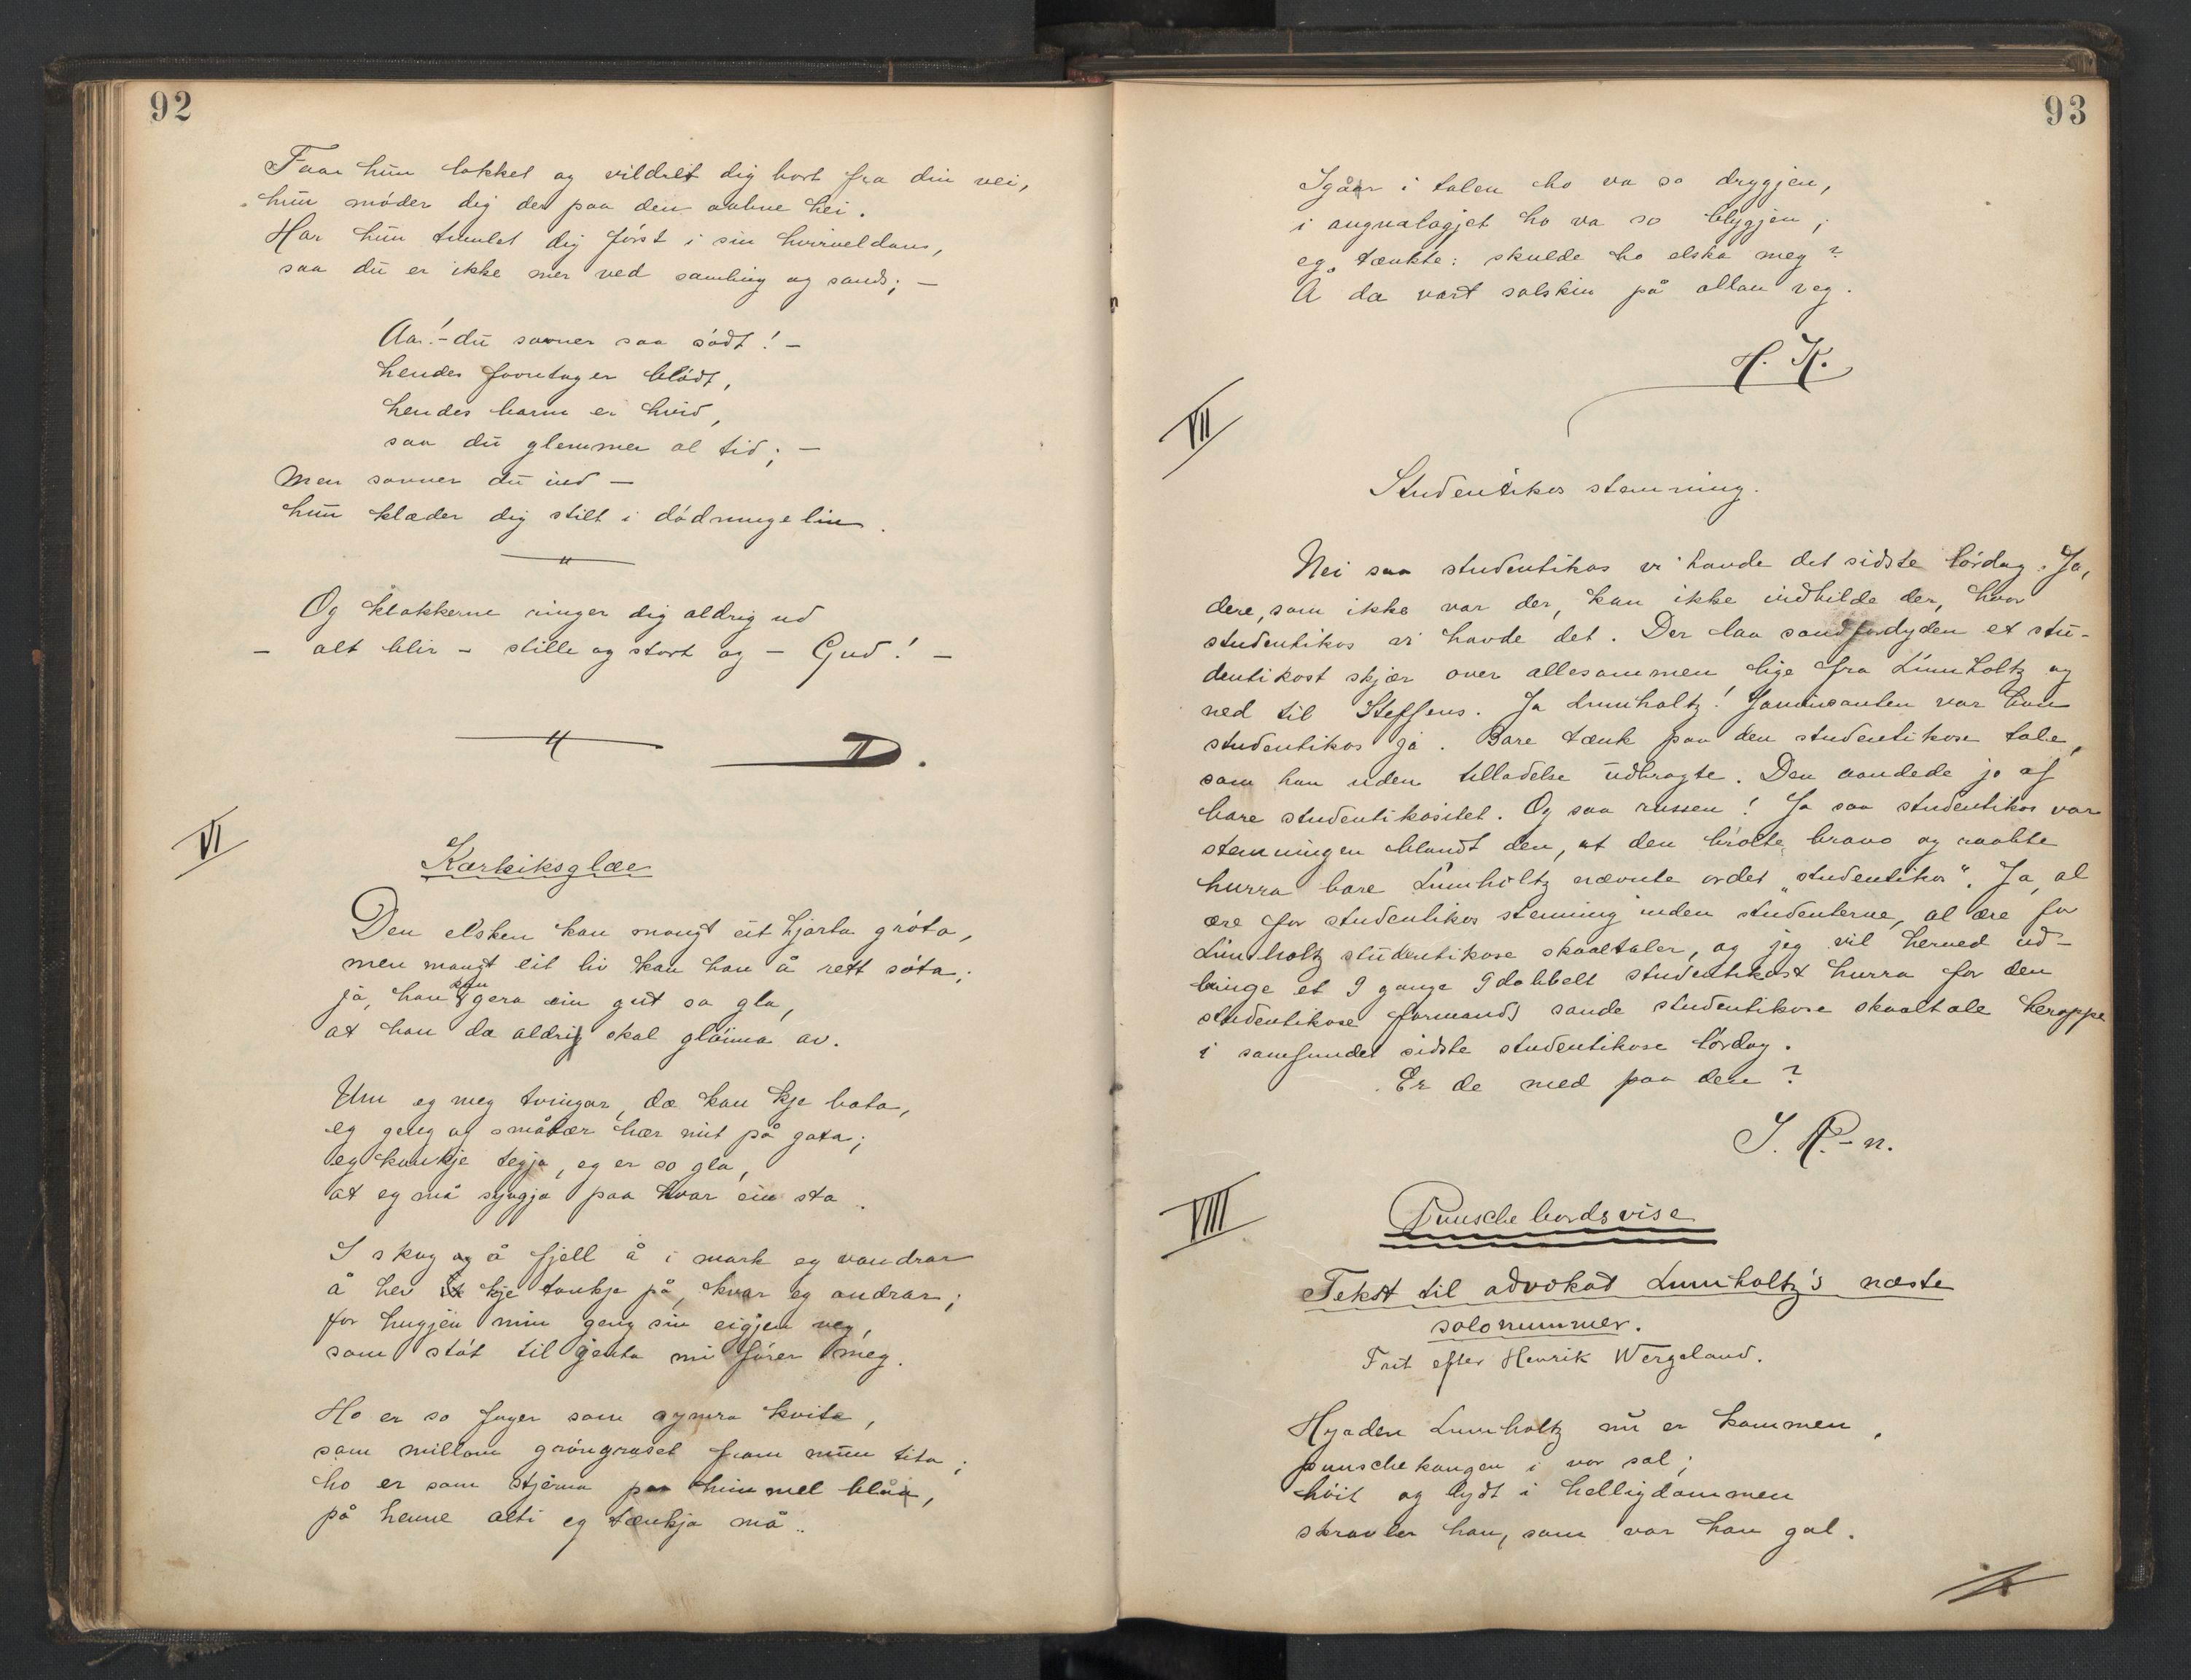 92
Faar hun lokket og vildret dig bort fra din vei,
hun møder dig der paa den aabne hei.
Har hun tumlet dig først i sin hvirveldans,
saa du er ikke mer ved samling og sands; —
Aa! – du sovner saa södt! —
hendes favntag er blödt,
hendes barm er hvid,
saa du glemmer al tid; —
Men sovner du ind —
hun klæder dig stilt i dödningelin.
Og klokkerne ringer dig aldrig ud
— alt blir – stille og stort og – Gud! —
D.
VI
Kærleiksglæe
Den elsken kan mangt eit hjarta gröta,
men mangt eit liv kan han å rett söta;
ja, han kan gera ein gut so gla,
at han da aldri skal glöima av.
Um eg meg tvingar, da kan kje bata,
eg geng og smålær hær mit på gata;
eg kan kje tegja, eg er so gla,
at eg må syngja paa kvar ein sta.
I skog og å fjell å i mark eg vandrar
å hev kje tankje på, kvar eg andrar;
for hugjen min geng sin eigjen veg,
som stöt til jenta mi förer meg.
Ho er so fager som symra kvita,
som millom gröngraset fram mun tita;
ho er som stjerna paa himmel blåa,
på henne alti eg tænkja må.
93
Igår i talen ho va so drygjen,
i augnalagjet ho va so blygjen;
eg tænkte: skulde ho elska meg?
Å da vart solskin på allan veg.
H. K.
VII
Studentikos stemning.
Nei saa studentikos vi havde det sidste lördag. Ja,
dere, som ikke var der, kan ikke indbilde der, hvor
studentikos vi havde det. Der laa sandfordyden et stu-
dentikost skjær over allesammen lige fra Lumholtz og
ned til Steffens. Ja Lumholtz! Jaminsanten var han
studentikos ja. Bare tænk paa den studentikose tale,
som han uden tilladelse udbragte. Den aandede jo af
bare studentikositet. Og saa russen! Ja saa studentikos var
stemningen blandt den, at den brölte bravo og raabte
hurra bare Lumholtz nævnte ordet „studentikos“. Ja, al
ære for studentikos stemning inden studenterne, al ære for
Lumholtz studentikose skaaltaler, og jeg vil herved ud-
bringe et 9 gange 9 dobbelt studentikost hurra for den
studentikose formands sande studentikose skaaltale heroppe
i samfundet sidste studentikose lördag.
Er de med paa den?
J. R–n.
VIII
Punschebordsvise
Tekst til advokat Lumholtz's næste
solonummer.
Frit efter Henrik Wergeland.
Hyaden Lumholtz nu er kommen,
punschekongen i vor sal;
höit og lydt i helligdommen
skravler han, som var han gal.